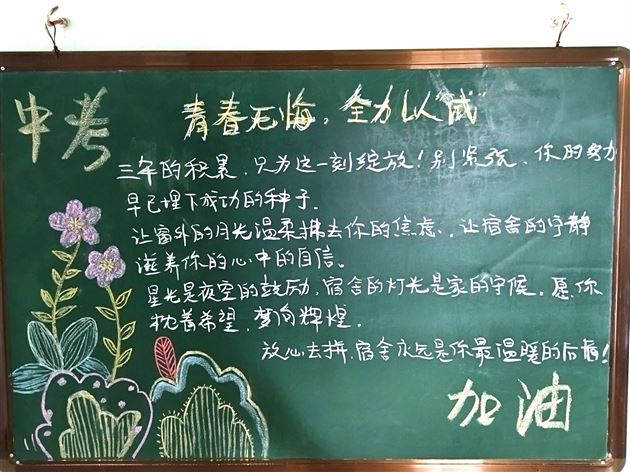 中考
青春无悔，全力以试"
三年的积累，只为这一刻绽放！别紧张，你的努力
早已埋下成功的种子.
让窗外的月光温柔拂去你的焦虑，让宿舍的宁静
滋养你的心中的自信。
星光是夜空的鼓励，宿舍的灯光是家的守候。愿你
枕着希望，梦向辉煌.
放心去拼，宿舍永远是你最温暖的后盾！
加油